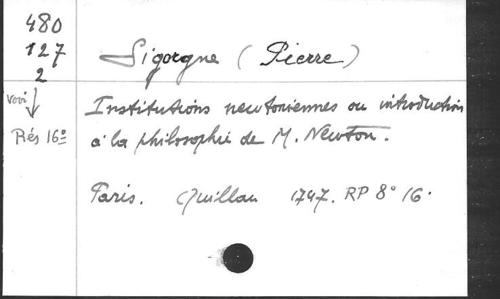 480
127
2
Voir
Rés 16°
Sigorgne (Pierre)
Institutions newtoniennes ou introduction
à la philosophie de M. Newton.
Paris. Quillau 1747. RP 8° 16.